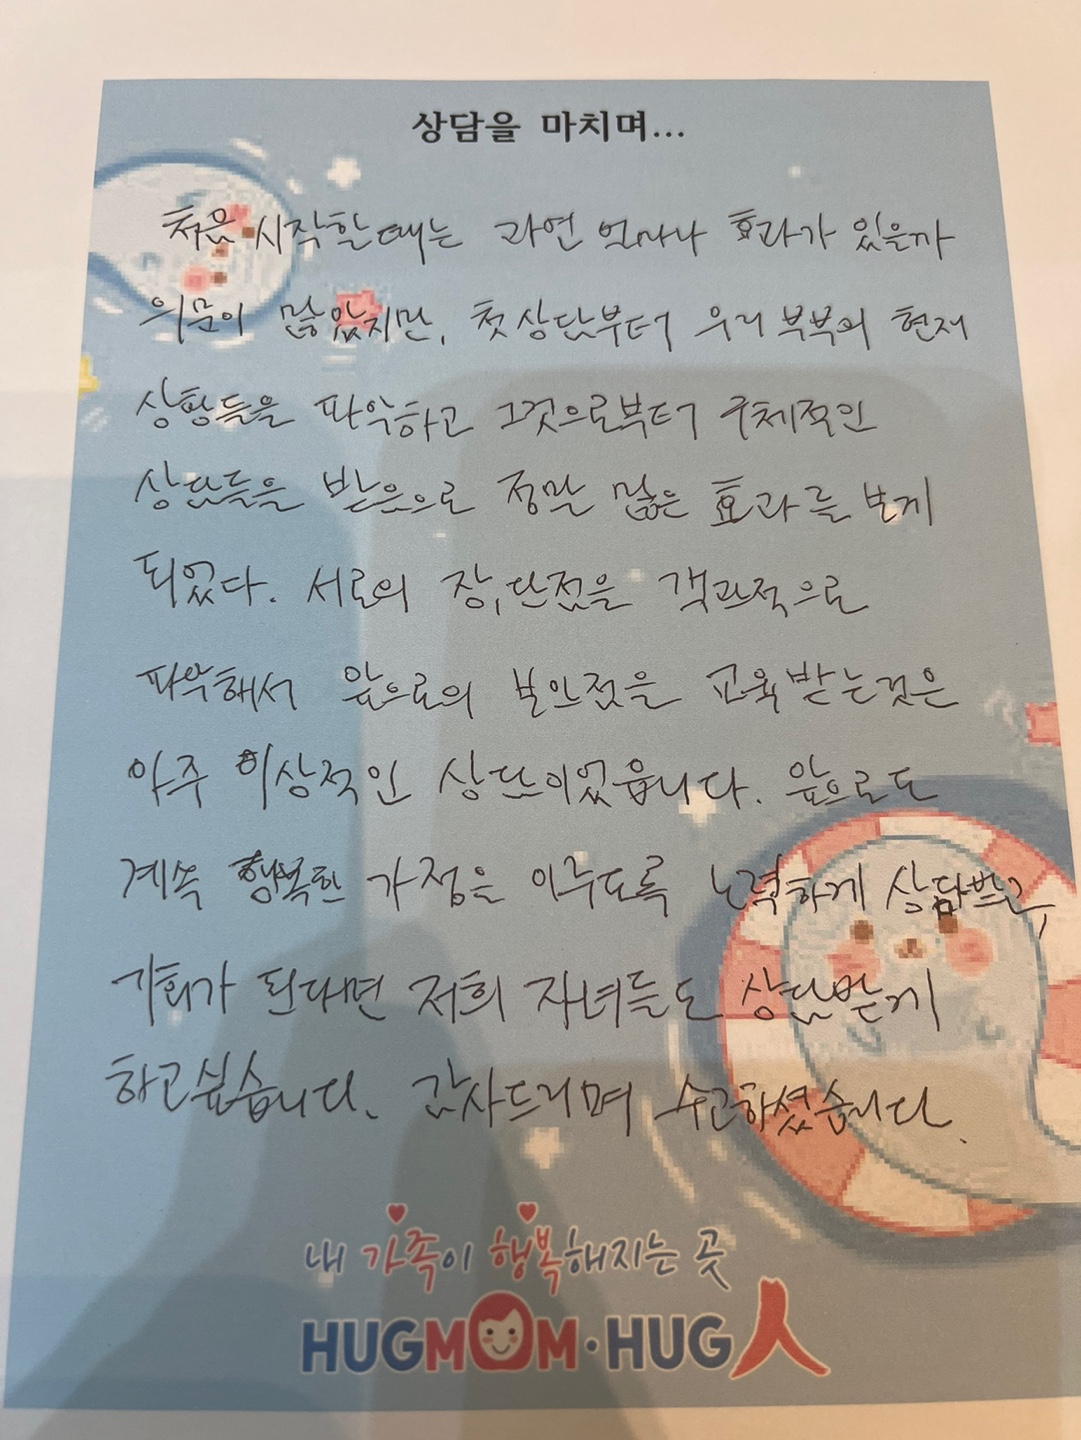 상담을 마치며...
처음 시작할때는 과연 얼마나 효과가 있을까
의문이 많았지만, 첫 상담부터 우리 부부의 현재
상황들을 파악하고 그것으로부터 구체적인
상담들을 받은으로 정말 많은 효과를 보게
되었다. 서로의 장,단점을 객관적으로
파악해서 앞으로의 보완점을 교육받는것은
아주 이상적인 상담이었읍니다. 앞으로도
계속 행복한 가정을 이루도록 노력하게 상담받고,
기회가 된다면 저희 자녀들도 상담받게
하고싶습니다. 감사드리며 수고하셨습니다.
내 가족이 행복해지는 곳
HUGMOM·HUG人